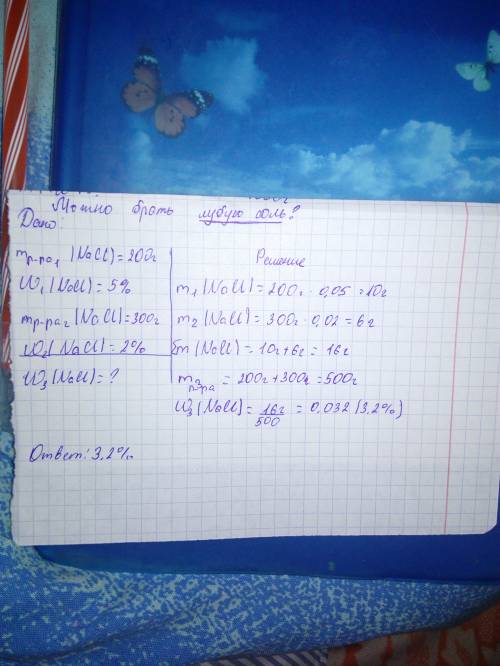 Можно брать любую соль?
Дано:
mр-ра1 (NaCl) = 200г
W1 (NaCl) = 5%
mр-ра2 (NaCl) = 300г
W2 (NaCl) = 2%
W3 (NaCl) = ?
Решение
m1 (NaCl) = 200г · 0,05 = 10г
m2 (NaCl) = 300г · 0,02 = 6г
m (NaCl) = 10г + 6г = 16г
m3 р-ра = 200г + 300г = 500г
W3 (NaCl) = 16г/500 = 0,032 (3,2%)
Ответ: 3,2%